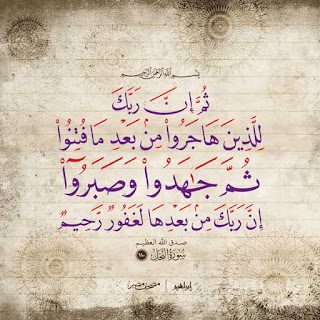 بسم الله الرحمن الرحيم
ثُمَّ إِنَّ رَبَّكَ
لِلَّذِينَ هَاجَرُوا۟ مِنۢ بَعْدِ مَا فُتِنُوا۟
ثُمَّ جَٰهَدُوا۟ وَصَبَرُوٓا۟
إِنَّ رَبَّكَ مِنۢ بَعْدِهَا لَغَفُورٌ رَّحِيمٌ
صدق الله العظيم
سورة النحل
إبراهيم